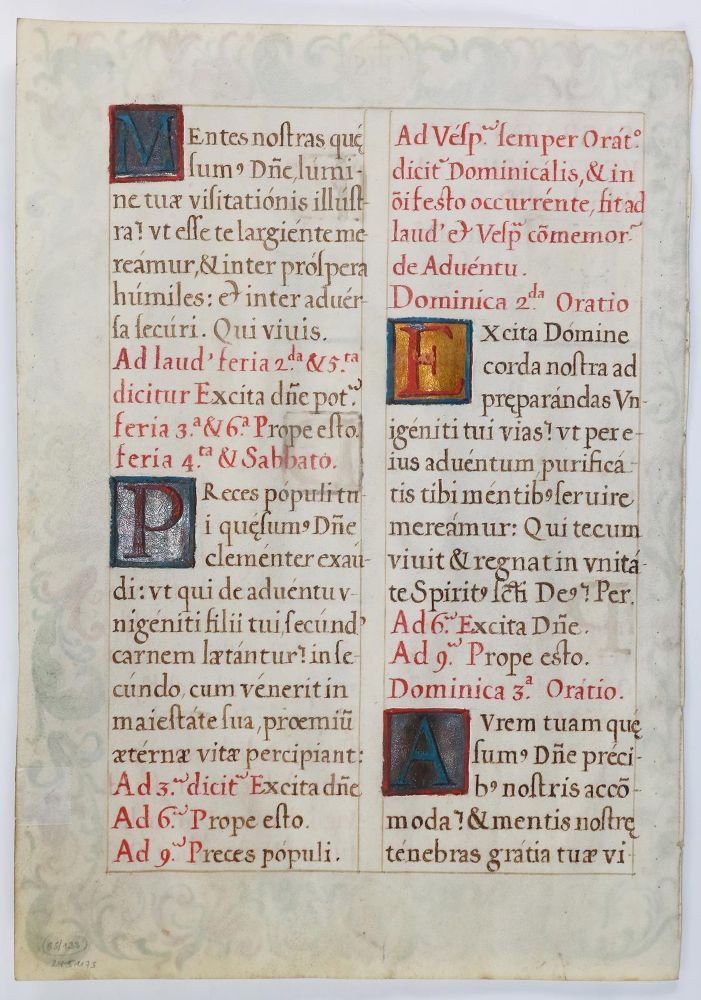 MEntes nostras quę
sumꝰ Dñe, lúmi-
ne tuæ visitatiónis illúst
ra: vt esse te largiénte me
reámur, & inter próspera
húmiles: & inter aduér-
sa secúri. Qui viuis.
Ad laud' feria 2.da & 5.ta
dicitur Excita dñe pot.
feria 3.a & 6.a Prope esto.
feria 4.ta & Sabbato.
PReces pópuli tu-
i quęsumꝰ Dñe
cleménter exáu-
di: vt qui de aduéntu v-
nigéniti filii tui, secúnd'
carnem lætántur: in se-
cúndo, cum vénerit in
maiestáte sua, proemiũ
ætérnæ vitæ percipiant:
Ad 3. dicit Excita dñe
Ad 6. Prope esto.
Ad 9. Preces pópuli.
Ad Vésp. semper Orát.o
dicit Dominicális, & in
õi festo occurrénte, fit ad
laud' & Vesp cõmemor.
de Aduéntu.
Dominica 2.da Oratio
EXcita Dómine
corda nostra ad
pręparándas Vn-
igéniti tui vias: vt per e-
ius aduéntum purificá-
tis tibi méntibꝰ seruire
mereámur: Qui tecum
viuit & regnat in vnitá-
te Spiritꝰ scti Deꝰ: Per.
Ad 6. Excita Dñe.
Ad 9. Prope esto.
Dominica 3.a Oratio.
AVrem tuam quę
sumꝰ Dñe préci-
bꝰ nostris accõ-
moda: & mentis nostrę
ténebras grátia tuæ vi-